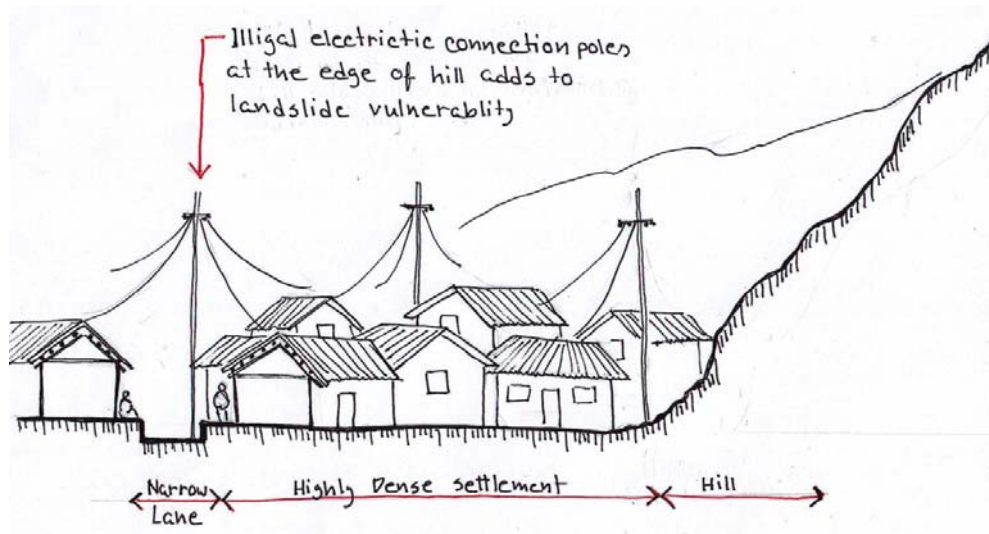 Illigal electrictic connection poles
at the edge of hill adds to
landslide vulnerablity
Narrow
Lane
Highly Dense settlement
Hill